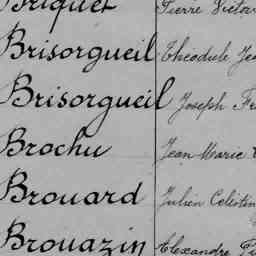 Briquet Pierre Victor
Brisorgueil Théodule Jea
Brisorgueil Joseph Fr
Brochu Jean Marie
Brouard Julien Célestin
Brouazin Alexandre Pi